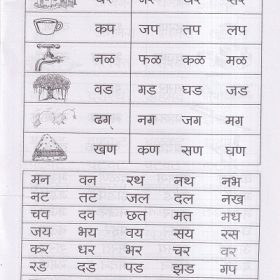 कप जप तप लप
नळ फळ कळ मळ
वड गड घड जड
ढग् नग जग मग
खण कण सण घण
मन वन रथ नथ नभ
नट तट जल दल नख
चव दव छत मत मध
जय भय वय सय रस
कर धर भर चर वर
रड दड पड झड गप